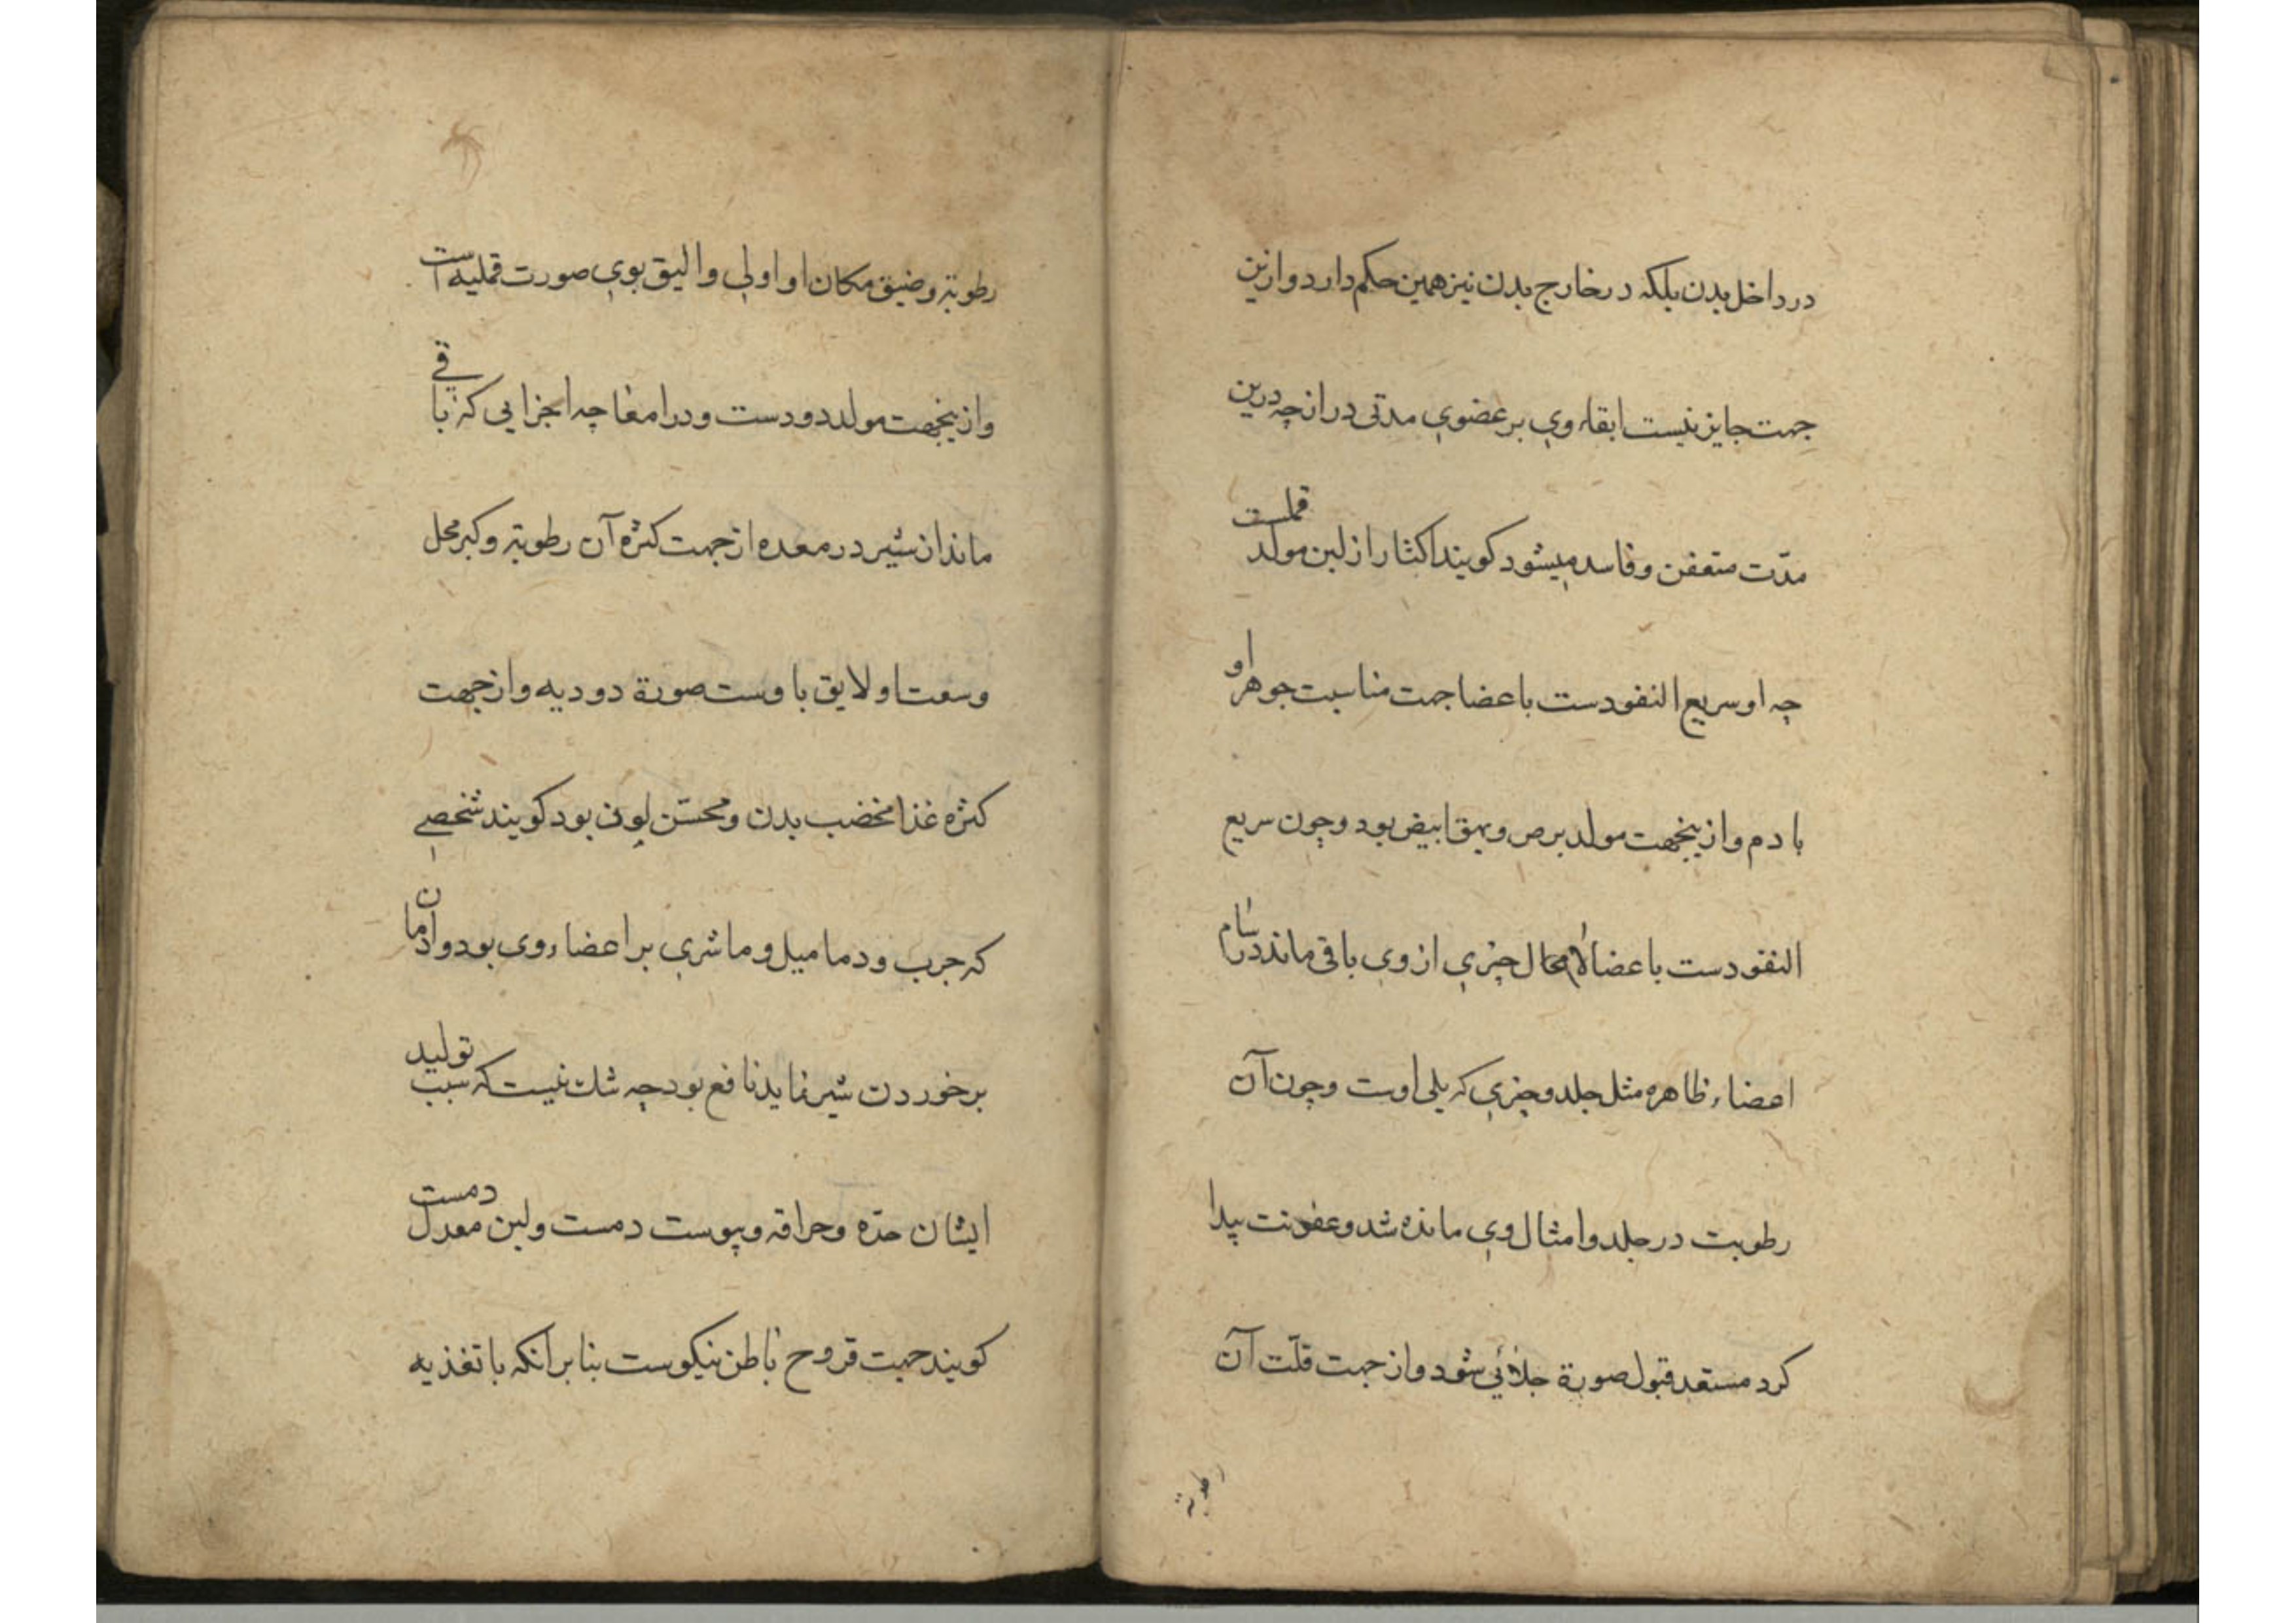 در داخل بدن بلکه در خارج بدن نیز همین حکم دارد و ازین
جهت جایز نیست ابقاء وی بر عضوی مدتی دراز چه درین
مدّت متعفن و فاسد میشود کویند اکثار از لبن مولد قملست
چه او سریع النفودست باعضا جهت مناسبت جوهر او
با دم و ازینجهت مولد برص و بهق ابیض بود و چون سریع
النفودست باعضا لامحال چیزی از وی باقی ماند در مسام
اعضاء ظاهره مثل جلد و چیزی که یلی اوست و چون آن
رطوبت در جلد و امثال وی مانده شد و عفونت پیدا
کرد مستعد قبول صورة شود و از جهت قلّت آن
رطوبة
رطوبة و ضیق مکان او اولی و الیق بوی صورت قملیه است
و ازینجهت مولد دودست و در امعا چه اجزایی که باقی
ماند از شیر در معده از جهت کثرة آن رطوبة و کبر محل
وسعت او لایق باوست صورة دودیه و از جهت
کثرة غذا مخضب بدن و محسّن لون بود کویند شخصی
که جرب و دمامیل و ماشری بر اعضاء وی بود و ادمان
بر خوردن شیر نماید نافع بود چه شک نیست که سبب تولید
ایشان حدّه و حراقه و یبوست دمست و لبن معدل دمست
کویند جهت قروح باطن نیکوست بنابر آنکه با تغذیه